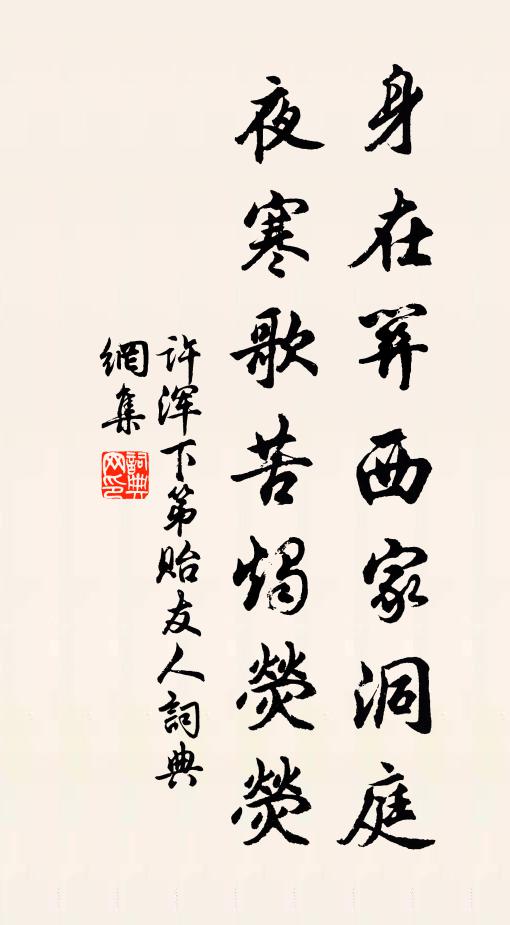 身在關西家洞庭
夜寒歌苦燭熒熒
許渾下第貽友人詞典
網集
詞典
网印